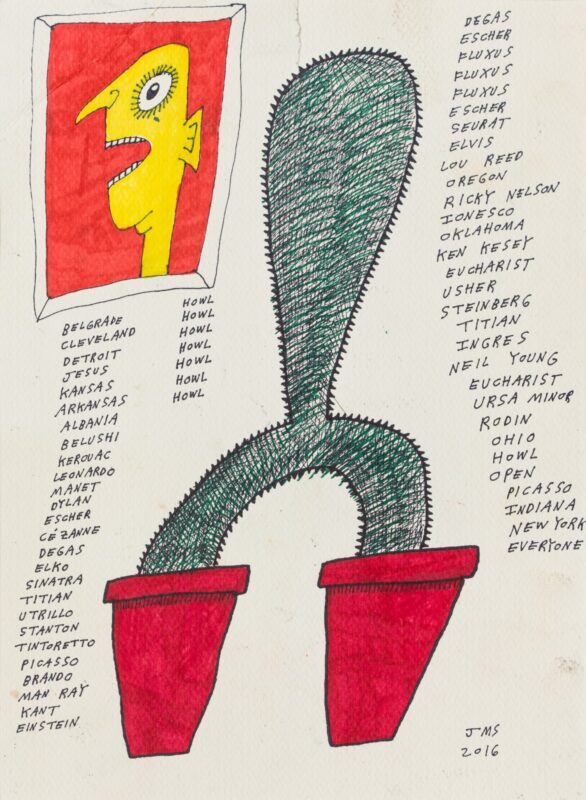 BELGRADE
CLEVELAND
DETROIT
JESUS
KANSAS
ARKANSAS
ALBANIA
BELUSHI
KEROUAC
LEONARDO
MANET
DYLAN
ESCHER
CÉZANNE
DEGAS
ELKO
SINATRA
TITIAN
UTRILLO
STANTON
TINTORETTO
PICASSO
BRANDO
MAN RAY
KANT
EINSTEIN
HOWL
HOWL
HOWL
HOWL
HOWL
HOWL
HOWL
DEGAS
ESCHER
FLUXUS
FLUXUS
FLUXUS
ESCHER
SEURAT
ELVIS
LOU REED
OREGON
RICKY NELSON
IONESCO
OKLAHOMA
KEN KESEY
EUCHARIST
USHER
STEINBERG
TITIAN
INGRES
NEIL YOUNG
EUCHARIST
URSA MINOR
RODIN
OHIO
HOWL
OPEN
PICASSO
INDIANA
NEW YORK
EVERYONE
JMS
2016